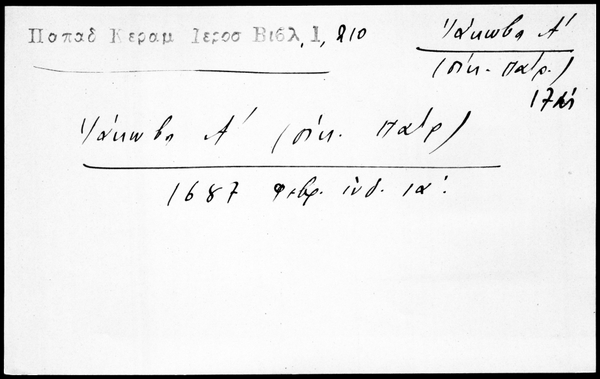 Παπαδ Κεραμ Ιεροσ Βιβλ, 1, 210
Ἰάκωβος Α'
(οἰκ. πατρ.)
Ἰάκωβος Α' (οἰκ. πατρ)
1687 φεβρ. ἰνδ. ια'.